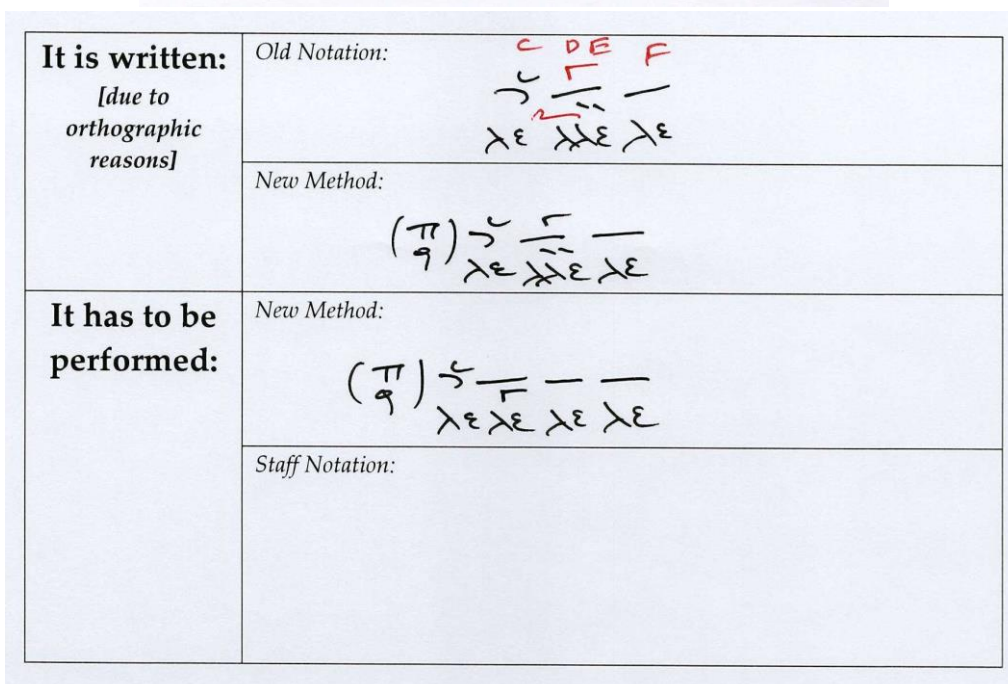 It is written:
[due to
orthographic
reasons]
Old Notation:
C D E F
λε λλε λε
New Method:
(π
q)
λε λλε λε
It has to be
performed:
New Method:
(π
q)
λε λε λε λε
Staff Notation: